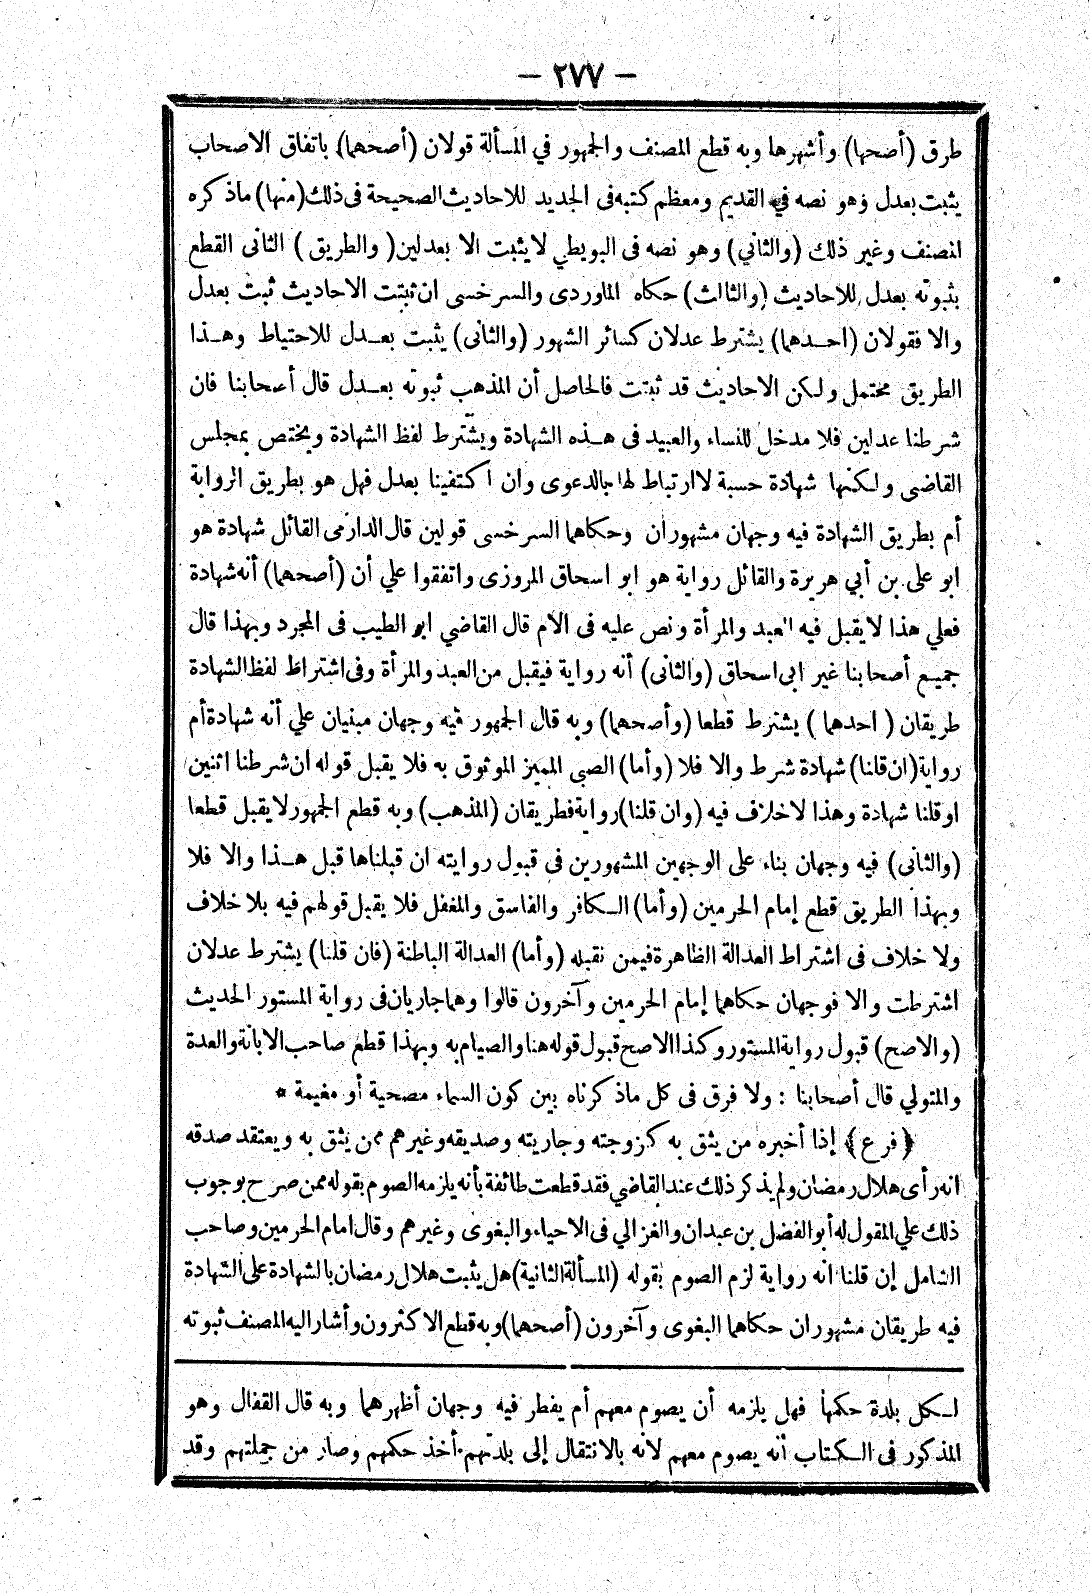 — ٢٧٧ —
طرق (أصحها) وأشهرها وبه قطع المصنف والجمهور في المسألة قولان (أصحهما) باتفاق الاصحاب
يثبت بعدل وهو نصه في القديم ومعظم كتبه فى الجديد للاحاديث الصحيحة فى ذلك (منها) ماذكره
المصنف وغير ذلك (والثاني) وهو نصه فى البويطي لا يثبت الا بعدلين (والطريق) الثانى القطع
بثبوته بعدل للاحاديث (والثالث) حكاه الماوردى والسرخسى ان ثبتت الاحاديث ثبت بعدل
والا فقولان (احـدهما) يشترط عدلان كسائر الشهور (والثانى) يثبت بعـدل للاحتياط وهـذا
الطريق محتمل ولكن الاحاديث قد ثبتت فالحاصل أن المذهب ثبوته بعـدل قال أصحابنا فان
شرطنا عدلين فلا مدخل للنساء والعبيد فى هـذه الشهادة ويشترط لفظ الشهادة ويختص بمجلس
القاضى ولكنها شهادة حسبة لا ارتباط لها بالدعوى وان اكتفينا بعدل فهل هو بطريق الرواية
أم بطريق الشهادة فيه وجهان مشهوران وحكاهما السرخسى قولين قال الدارمى القائل شهادة هو
ابو على بن أبي هريرة والقائل رواية هو ابو اسحاق المروزى واتفقوا علي أن (أصحهما) أنه شهادة
فعلي هذا لا يقبل فيه العبد والمرأة ونص عليه فى الام قال القاضي ابو الطيب فى المجرد وبهذا قال
جميع أصحابنا غير ابى اسحاق (والثانى) أنه رواية فيقبل من العبد والمرأة وفى اشتراط لفظ الشهادة
طريقان (احدهما) يشترط قطعا (وأصحهما) وبه قال الجمهور فيه وجهان مبنيان علي أنه شهادة أم
رواية (ان قلنا) شهادة شرط والا فلا (وأما) الصبي المميز الموثوق به فلا يقبل قوله ان شرطنا اثنين
او قلنا شهادة وهذا لا خلاف فيه (وان قلنا) رواية فطريقان (المذهب) وبه قطع الجمهور لا يقبل قطعا
(والثانى) فيه وجهان بناء على الوجهين المشهورين فى قبول روايته ان قبلناها قبل هـذا والا فلا
وبهذا الطريق قطع إمام الحرمين (وأما) الكافر والفاسق والمغفل فلا يقبل قولهم فيه بلا خلاف
ولا خلاف فى اشتراط العدالة الظاهرة فيمن نقبله (وأما) العدالة الباطنة (فان قلنا) يشترط عدلان
اشترطت والا فوجهان حكاهما إمام الحرمين وآخرون قالوا وهما جاريان فى رواية المستور الحديث
(والاصح) قبول رواية المستور وكذا الاصح قبول قوله هنا والصيام به وبهذا قطع صاحب الابانة والعدة
والمتولي قال أصحابنا : ولا فرق فى كل ماذكرناه بين كون السماء مصحية أو مغيمة *
﴿فرع﴾ إذا أخبره من يثق به كزوجته وجاريته وصديقه وغيرهم ممن يثق به ويعتقد صدقه
انه رأى هلال رمضان ولم يذكر ذلك عند القاضي فقد قطعت طائفة بأنه يلزمه الصوم بقوله ممن صرح بوجوب
ذلك علي المقول له أبو الفضل بن عبدان والغزالي فى الاحياء والبغوى وغيرهم وقال امام الحرمين وصاحب
الشامل إن قلنا انه رواية لزم الصوم بقوله (المسألة الثانية) هل يثبت هلال رمضان بالشهادة على الشهادة
فيه طريقان مشهوران حكاهما البغوى وآخرون (أصحهما) وبه قطع الاكثرون وأشار اليه المصنف ثبوته
لكل بلدة حكمها فهل يلزمه أن يصوم معهم أم يفطر فيه وجهان أظهرهما وبه قال القفال وهو
المذكور فى الكتاب أنه يصوم معهم لانه بالانتقال إلى بلدتهم أخذ حكمهم وصار من جملتهم وقد